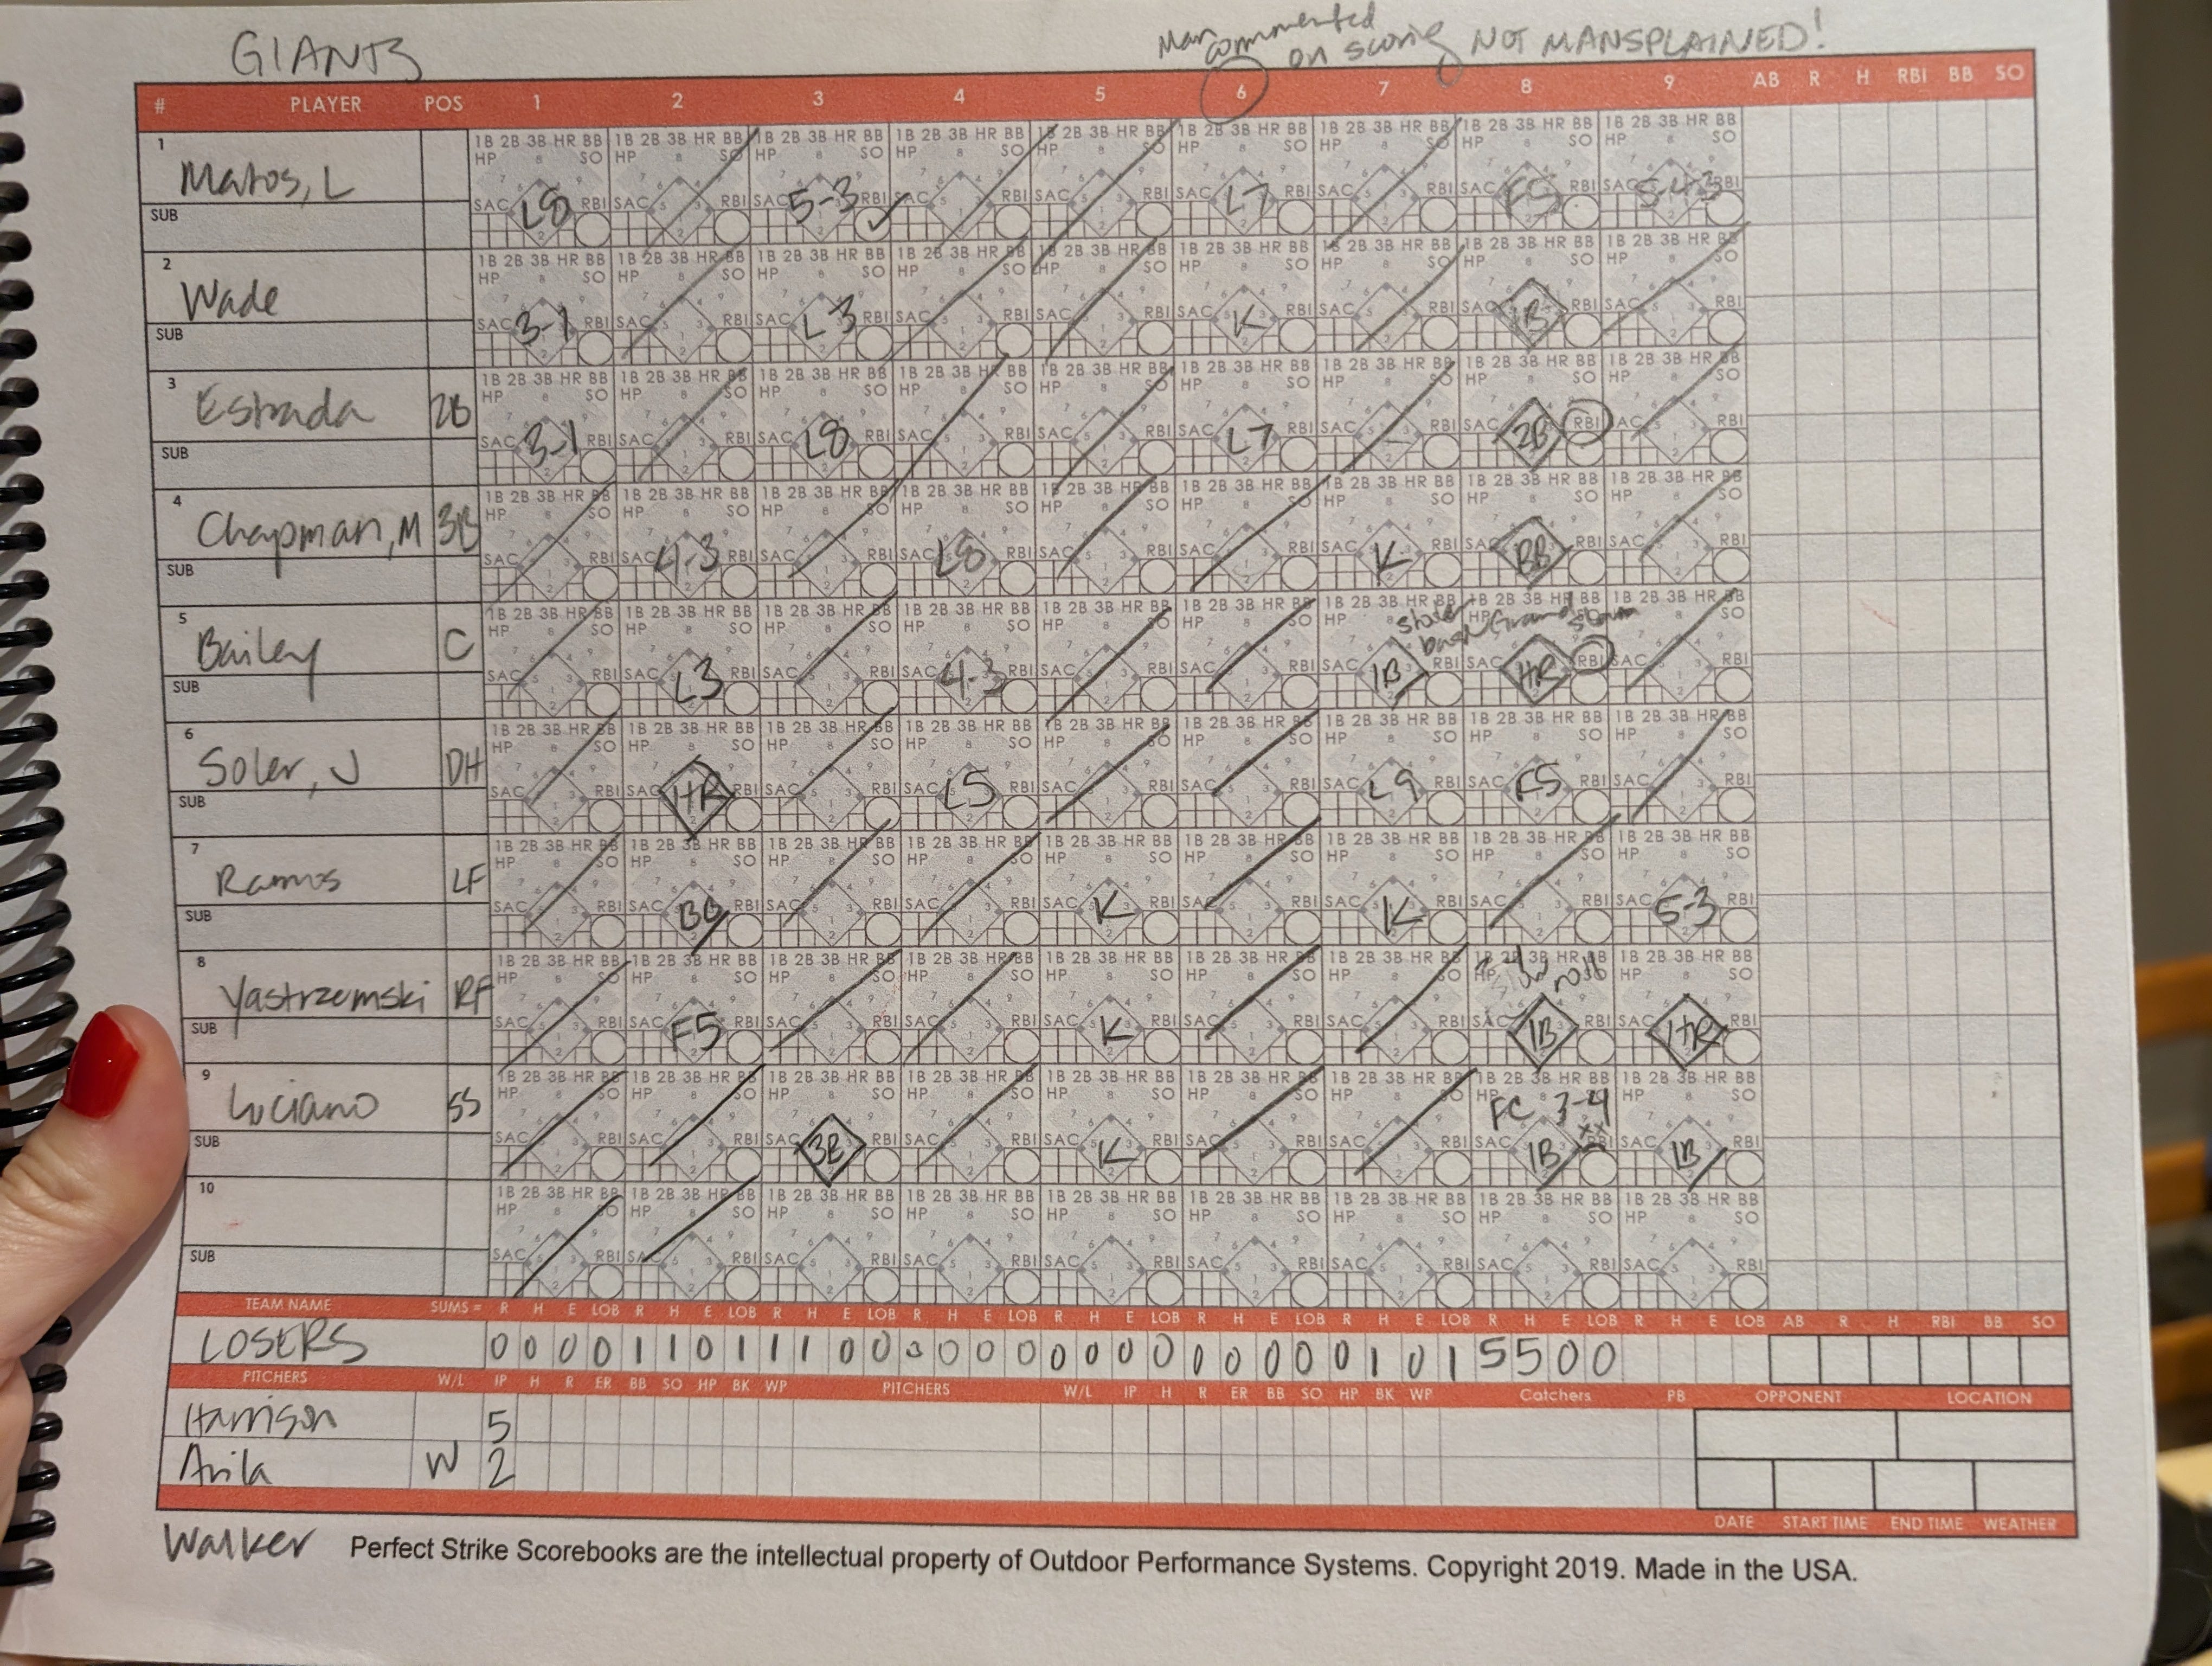 GIANTS
Man commented on scoring NOT MANSPLAINED!
# PLAYER POS 1 2 3 4 5 6 7 8 9 AB R H RBI BB SO
1 Matos, L L8 5-3 L7 F5 5-4-3
SUB
2 Wade 3-1 L3 K 1B
SUB
3 Estrada 2B 3-1 L8 L7 2B RBI
SUB
4 Chapman, M 3B 4-3 L8 K BB
SUB
5 Bailey C L3 4-3 stolen base 1B Grand slam HR RBI
SUB
6 Soler, J DH HR L5 L9 F5
SUB
7 Ramos LF BB K K 5-3
SUB
8 Yastrzemski RF F5 K slow roll 1B HR
SUB
9 Luciano SS 3B K FC 3-4 1B 1B
SUB
10
SUB
TEAM NAME SUMS = R H E LOB R H E LOB R H E LOB R H E LOB R H E LOB R H E LOB R H E LOB R H E LOB R H E LOB AB R H RBI BB SO
LOSERS 0 0 0 0 1 1 0 1 1 1 0 0 0 0 0 0 0 0 0 0 0 0 0 0 0 1 0 1 5 5 0 0
PITCHERS W/L IP H R ER BB SO HP BK WP PITCHERS W/L IP H R ER BB SO HP BK WP Catchers PB OPPONENT LOCATION
Harrison 5
Avila W 2
DATE START TIME END TIME WEATHER
Walker Perfect Strike Scorebooks are the intellectual property of Outdoor Performance Systems. Copyright 2019. Made in the USA.